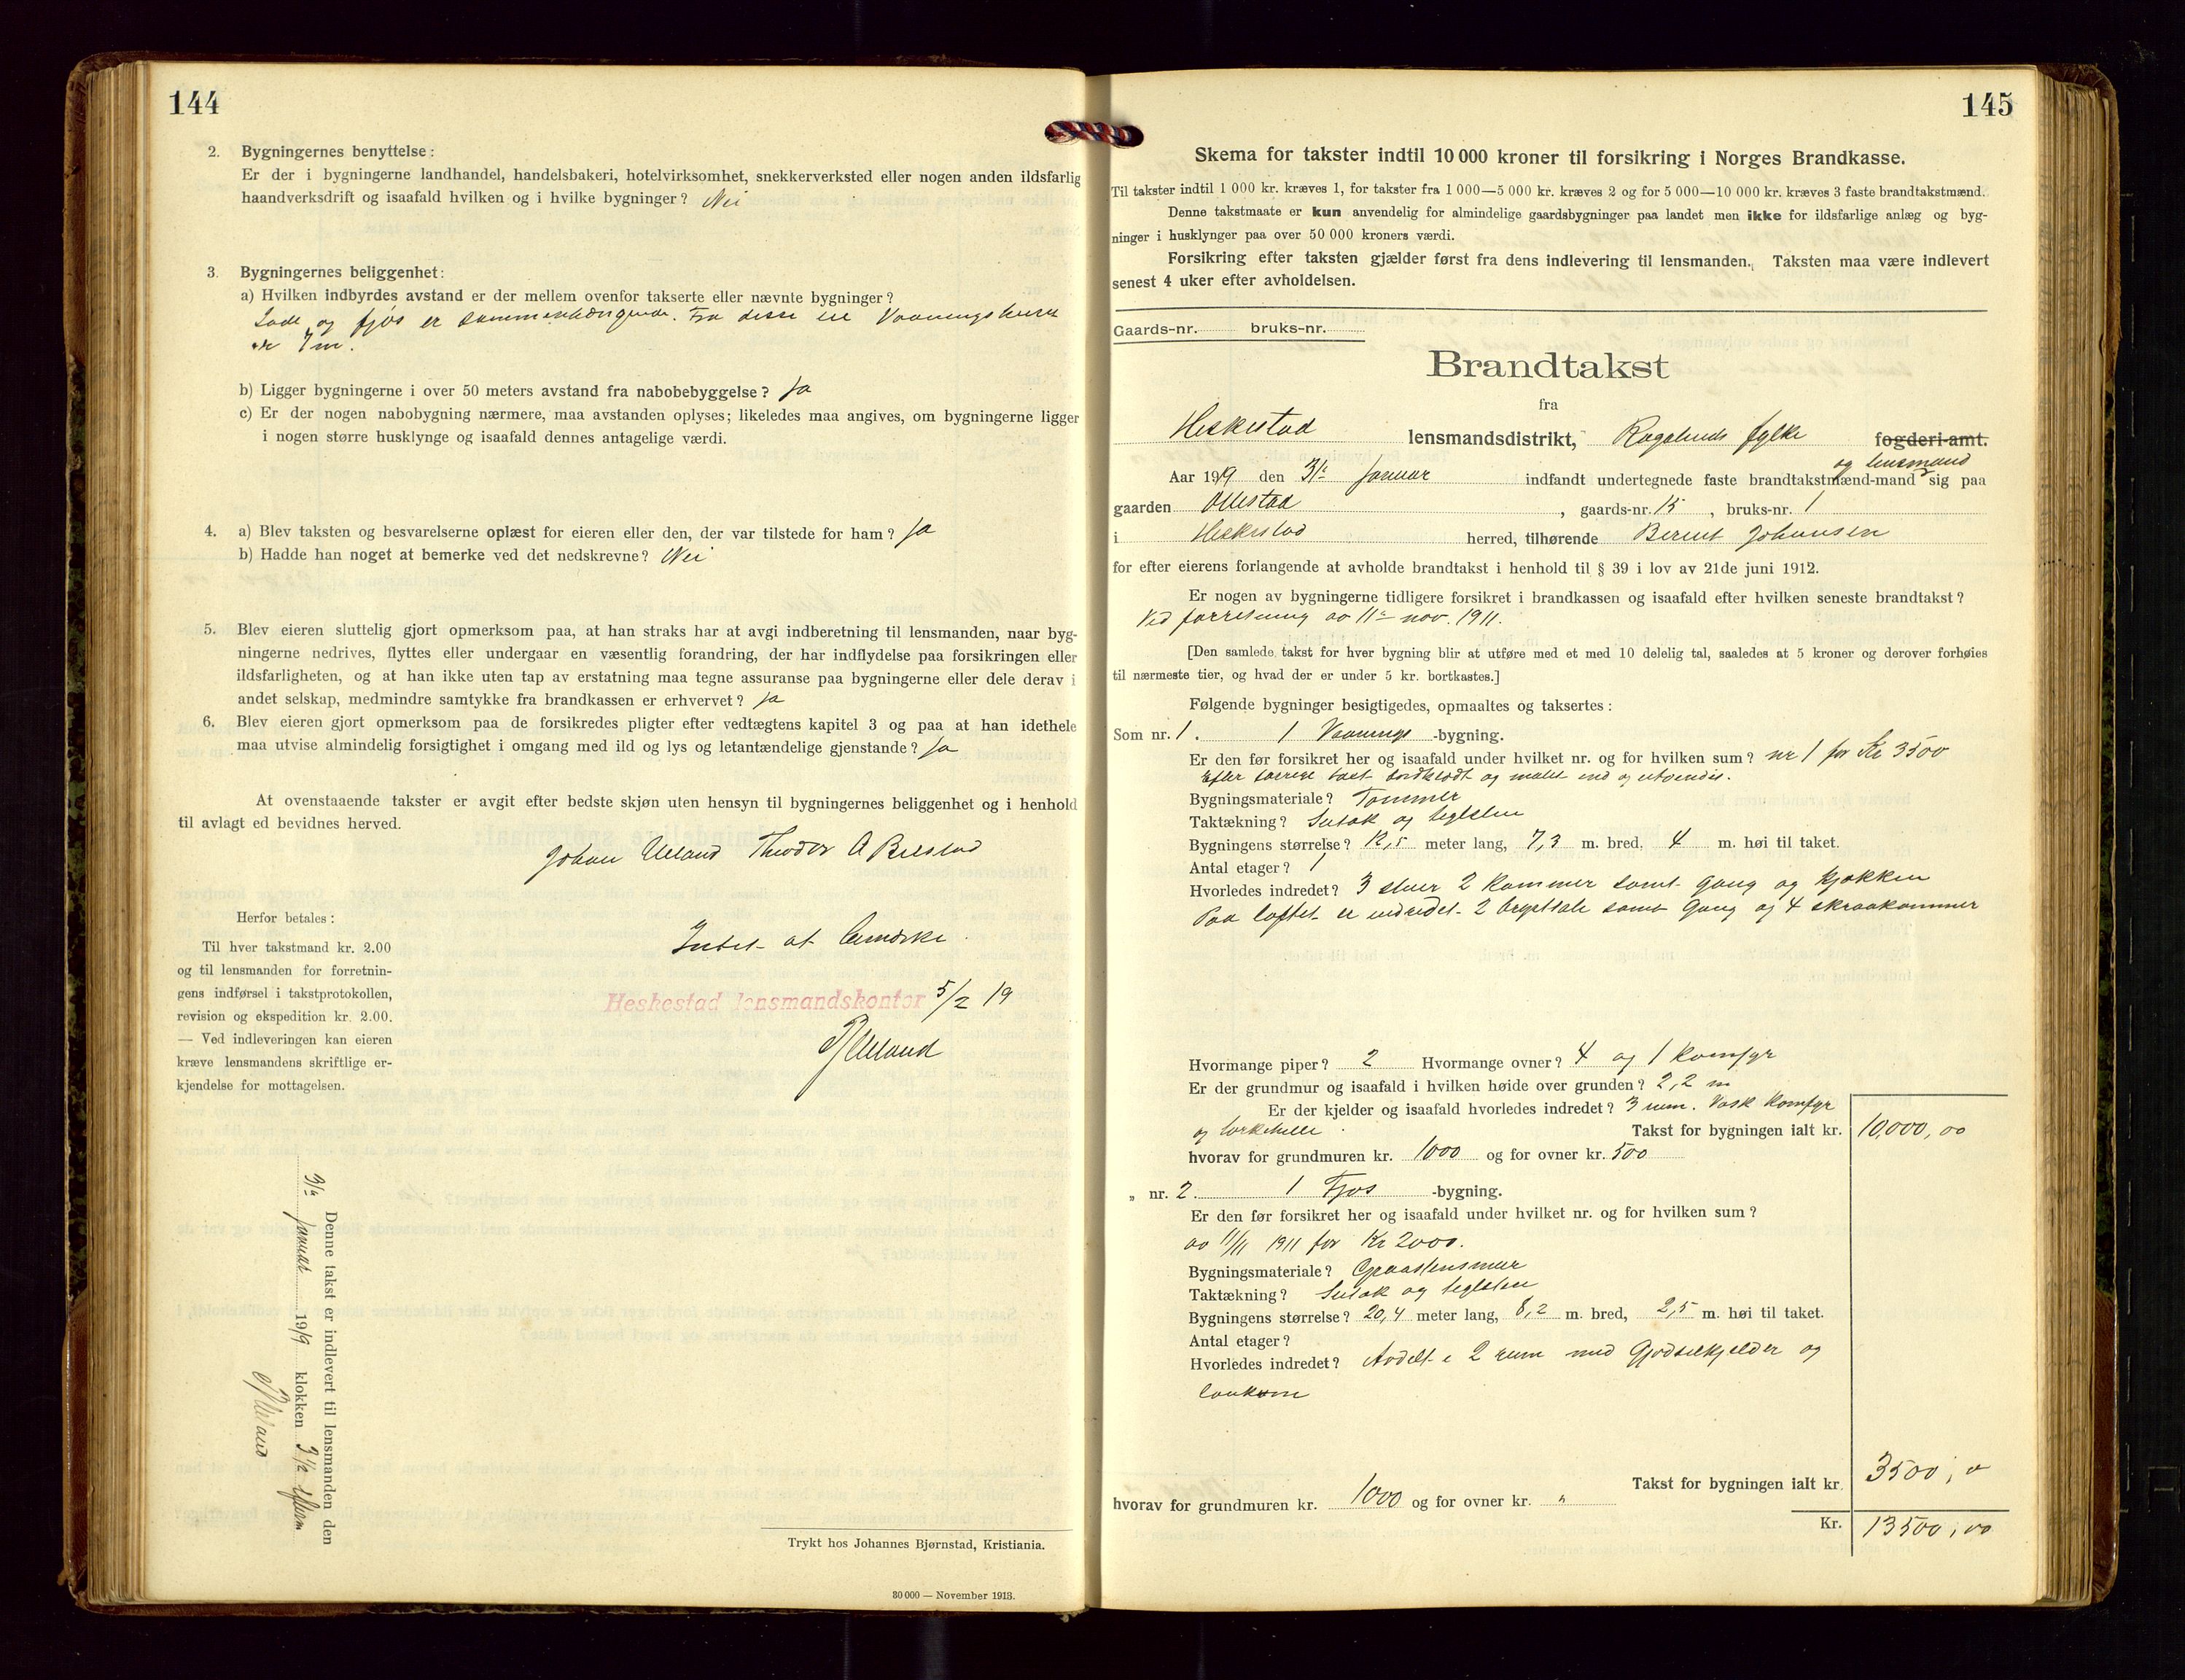 144
2. Bygningernes benyttelse:
Er der i bygningerne landhandel, handelsbakeri, hotelvirksomhet, snekkerverksted eller nogen anden ildsfarlig
haandverksdrift og isaafald hvilken og i hvilke bygninger? Nei
3. Bygningernes beliggenhet:
a) Hvilken indbyrdes avstand er der mellem ovenfor takserte eller nævnte bygninger?
Lade og fjøs er sammenhængende. Fra disse til Vaaningshuset
er 7 m.
b) Ligger bygningerne i over 50 meters avstand fra nabobebyggelse? Ja
c) Er der nogen nabobygning nærmere, maa avstanden oplyses; likeledes maa angives, om bygningerne ligger
i nogen større husklynge og isaafald dennes antagelige værdi.
4. a) Blev taksten og besvarelserne oplæst for eieren eller den, der var tilstede for ham? Ja
b) Hadde han noget at bemerke ved det nedskrevne? Nei
5. Blev eieren sluttelig gjort opmerksom paa, at han straks har at avgi indberetning til lensmanden, naar byg-
ningerne nedrives, flyttes eller undergaar en væsentlig forandring, der har indflydelse paa forsikringen eller
ildsfarligheten, og at han ikke uten tap av erstatning maa tegne assuranse paa bygningerne eller dele derav i
andet selskap, medmindre samtykke fra brandkassen er erhvervet? Ja
6. Blev eieren gjort opmerksom paa de forsikredes pligter efter vedtægtens kapitel 3 og paa at han idethele
maa utvise almindelig forsigtighet i omgang med ild og lys og letantændelige gjenstande? Ja
At ovenstaaende takster er avgit efter bedste skjøn uten hensyn til bygningernes beliggenhet og i henhold
til avlagt ed bevidnes herved.
Johan Ueland Theodor A
Herfor betales:
Til hver takstmand kr. 2.00
og til lensmanden for forretnin-
gens indførsel i takstprotokollen,
revision og ekspedition kr. 2.00.
— Ved indleveringen kan eieren
kræve lensmandens skriftlige er-
kjendelse for mottagelsen.
Intet at bemerke.
Heskestad lensmandskontor 5/2 19
Ueland
Denne takst er indlevert til lensmanden den
31te Januar 1919 klokken 3 1/2 efterm
Ueland
Trykt hos Johannes Bjørnstad, Kristiania.
30 000 — November 1913.
145
Skema for takster indtil 10 000 kroner til forsikring i Norges Brandkasse.
Til takster indtil 1 000 kr. kræves 1, for takster fra 1 000—5 000 kr. kræves 2 og for 5 000—10 000 kr. kræves 3 faste brandtakstmænd.
Denne takstmaate er kun anvendelig for almindelige gaardsbygninger paa landet men ikke for ildsfarlige anlæg og byg-
ninger i husklynger paa over 50 000 kroners værdi.
Forsikring efter taksten gjælder først fra dens indlevering til lensmanden. Taksten maa være indlevert
senest 4 uker efter avholdelsen.
Gaards-nr. bruks-nr.
Brandtakst
fra
Heskestad lensmandsdistrikt, Rogalands fylke fogderi-amt.
og lensmand
Aar 1919 den 31te Januar indfandt undertegnede faste brandtakstmænd-mand sig paa
gaarden Ollestad, gaards-nr. 15, bruks-nr. 1
i Heskestad herred, tilhørende Berent Johansen
for efter eierens forlangende at avholde brandtakst i henhold til § 39 i lov av 21de juni 1912.
Er nogen av bygningerne tidligere forsikret i brandkassen og isaafald efter hvilken seneste brandtakst?
Ved forretning av 11te nov. 1911.
[Den samlede takst for hver bygning blir at utføre med et med 10 delelig tal, saaledes at 5 kroner og derover forhøies
til nærmeste tier, og hvad der er under 5 kr. bortkastes.]
Følgende bygninger besigtigedes, opmaaltes og taksertes:
Som nr. 1. 1 Vaanings-bygning.
Er den før forsikret her og isaafald under hvilket nr. og for hvilken sum? nr 1 for Kr 3500
Efter bordklædt og malet ind og utvendig.
Bygningsmateriale? Tømmer
Taktækning? Sutak og teglsten
Bygningens størrelse? 12,5 meter lang, 7,3 m. bred, 4 m. høi til taket.
Antal etager? 1
Hvorledes indredet? 3 stuer 2 kammer samt gang og kjøkken
Paa loftet er indredet 2 samt gang og 4 skraakammer
Hvormange piper? 2 Hvormange ovner? 4 og 1 komfyr
Er der grundmur og isaafald i hvilken høide over grunden? 2,2 m
Er der kjelder og isaafald hvorledes indredet? 3 rum. Vask komfyr
og Takst for bygningen ialt kr. 10,000,00
hvorav for grundmuren kr. 1000 og for ovner kr. 500
„ nr. 2. 1 Fjøs -bygning.
Er den før forsikret her og isaafald under hvilket nr. og for hvilken sum?
av 11/11 1911 for Kr 2000.
Bygningsmateriale? Graastensmur
Taktækning? Sutak og teglsten
Bygningens størrelse? 20,4 meter lang, 8,2 m. bred, 2,5 m. høi til taket.
Antal etager?
Hvorledes indredet? Avdelt i 2 rum med Gjødselkjelder og
Takst for bygningen ialt kr. 3500,0
hvorav for grundmuren kr. 1000 og for ovner kr. „
Kr. 13500,00